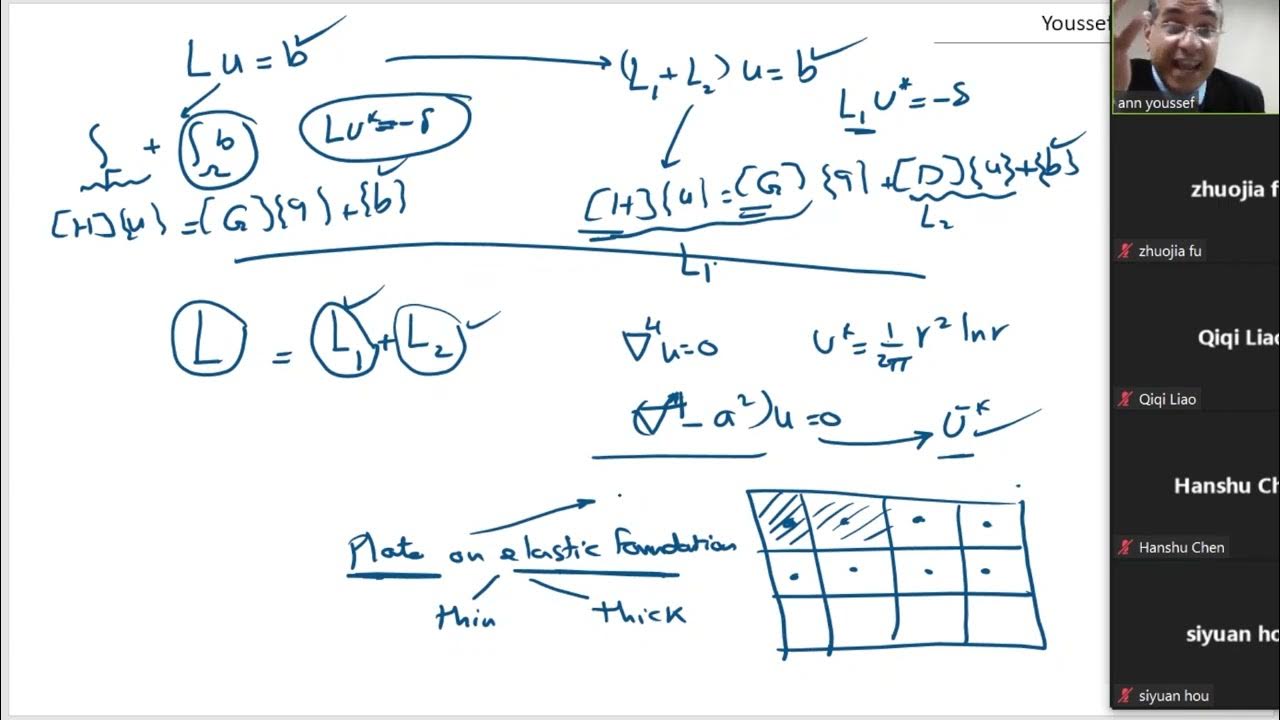 Youssef
Lu = b ✓ → (L₁ + L₂) u = b ✓
L₁ U* = -δ
∫ + ∫_Ω b
LU* = -δ
[H]{u} = [G]{q} + {b} ✓
[H]{u} = [G]{q} + [D]{u} + {b} ✓
L₁
L₂
L = L₁ + L₂ ✓
∇⁴u = 0
U* = 1/2π r² ln r
(∇⁴ - a²)u = 0 → Ū* ✓
Plate on elastic foundation
thin
thick
ann youssef
zhuojia f
zhuojia fu
Qiqi Liao
Qiqi Liao
Hanshu Ch
Hanshu Chen
siyuan ho
siyuan hou